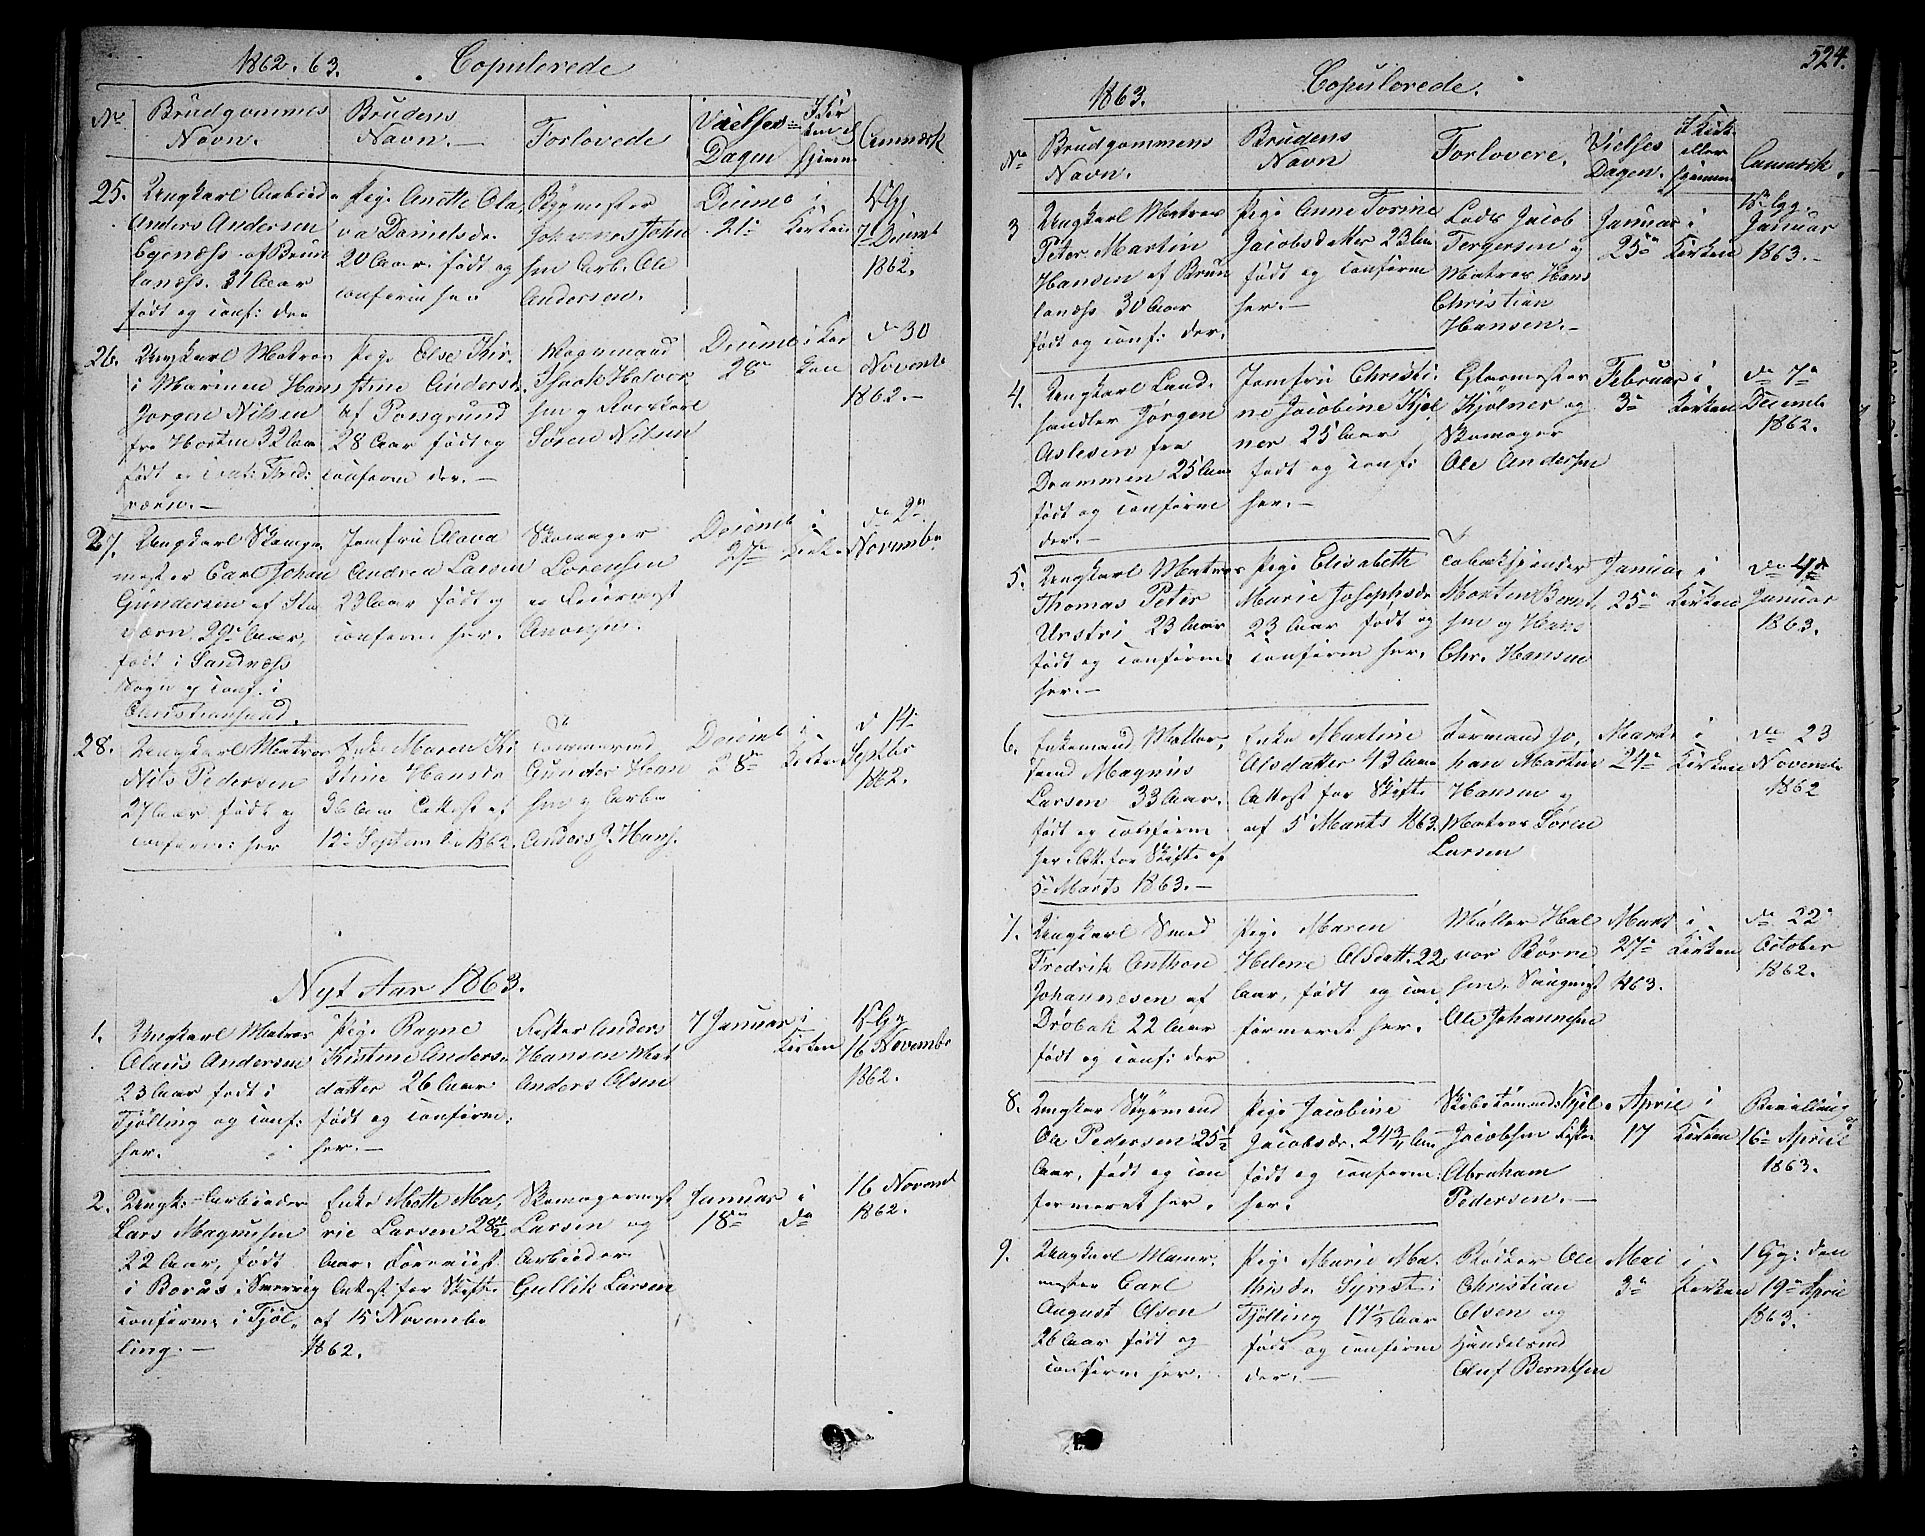 1862. 63. Copulerede
No
Brudgommes
Navn.
Brudens
Navn.
Forlovede
Vielses
Dagen
I Kir
ken el
hjemme
Anmærk
25. Ungkarl Arbeide
Anders Andersen
Egenæss af Brun
lanæss. 31 Aar
født og conf: der
Pige Anette Ola
va Danielsdr.
20 Aar. født og
confirm her
Bygmester
Johannes John
sen Arb. Ole
Andersen.
Decemb
21de
i
Kirken
Lyst
7de Decemb
1862.
26. Ungkarl Matros
i Marinen Hans
Jørgen Nilsen
fra Horten 32 Aar
født og conf: Fred:
værn.
Pige Else Kir
stine Andersd.
af Porsgrund
28 Aar født og
confirm der.
Vognmand
Isaak Halvor
sen og
Søren Nilsen
Decemb
28de
i Kir
ken
do 30
Novemb
1862.
27. Ungkarl Skomager
mester Carl Johan
Gundersen af Sta
værn, 29 Aar,
født i Sandnæss
Sogn og conf. i
Christiansund.
Jomfru Alava
Andrea Larsen
23 Aar født og
confirm her.
Skomager
Lorensen
og Feiermest
Anorsen.
Decemb
27de
i
Kirke
do 2n
Novembr
28. Ungkarl Matros
Nils Pedersen
27 Aar født og
confirm: her
Enke Maren Ki
stine Hansdr
36 Aar Attest af
12te Septembr 1862.
Tømmermd
Gunder Han
sen og Arb
Anders J. Hans.
Decemb
28de
i
Kirken
d 14
Septbr
1862.
Nyt Aar 1863.
1. Ungkarl Matros
Olaus Andersen
23 Aar født i
Tjølling og conf:
her.
Pige Ragne
Kristine Anders
datter 26 Aar
født og confirm:
her.
Fisker Anders
Hansen Mat
Anders Olsen
7 Januar
i
Kirken
Lys
16 Novembr
1862.
2. Ungk. Arbeider
Lars Magnusen
22 Aar, født
i Borås i Sverrig
confirm i Tjøl
ling.
Enke Mette Ma
rie Larsen 28½
Aar. Foreviist
Attest for Skifte
af 15 Novembr
1862.
Skomagermest
Larsen og
Arbeider
Gullik Larsen
Januar
18de
i
do
16 Novemb
1862.
524.
1863. Copulerede.
No
Brudgommens
Navn.
Brudens
Navn
Forlovere.
Vielses
Dagen.
I Kirk
eller
hjemme
Anmærk.
3 Ungkarl Matros
Peter Martin
Hansen af Brun
lanæss 30 Aar
født og conf: der.
Pige Anne Torine
Jacobsdatter 23 Aar
født og confirm
her.
Lods Jacob
Torgersen og
Matros Hans
Christian
Hansen.
Januar
25de
i
Kirken
Lyst
Januar
1863.
4. Ungkarl Land.
handler Jørgen
Aslesen fra
Drammen 25 Aar
født og confirm
der.
Jomfru Christi
ne Jacobine Kjøl
ner 25 Aar
født og conf:
her.
Glarmester
Kjølner og
Skomager
Ole Andersen
Februar
3de
i
Kirken
do 7de
Decemb
1862.
5. Ungkarl Matros
Thomas Peter
Urstri 23 Aar
født og confirm:
her.
Pige Elisabeth
Marie Josephsdr
23 Aar født og
confirm her.
Tobakspinder
Morten Bernt
sen og Hans
Chr. Hansen
Januar
25de
i
Kirken
do 4de
Januar
1863.
6. Enkemand Møller
svend Magnus
Larsen 33 Aar.
født og confirm
her. Att. for Skifte af
5te Marts 1863.
Enke Martine
Olsdatter 43 Aar
Attest for Skifte
af 5 Marts 1863.
Formand Jo
han Martin
Hansen og
Matros Søren
Larsen
Marts
24de
i
Kirken
do 23
Novembr
1862
7. Ungkarl Smed
Fredrik Anthon
Johannesen af
Drøbak 22 Aar
født og conf: der
Pige Maren
Helene Olsdatt. 22
Aar, født og con
firmeret her.
Møller Hal
vor Børre
sen. Saugmest
Ole Johannesen
Marts
27de
1863.
i
Kirken
do 22de
October
1862.
8. Ungkar Styrmand
Ole Pedersen 25½
Aar, født og con
firmeret her.
Pige Jacobine
Jacobsdr. 24¾ Aar
født og confirm
her.
Skibstømmd: Kjel
Jacobsen Fisker
Abraham
Pedersen.
April
17
i
Kirken
Bevilling af
16de April
1863.
9. Ungkarl Murer.
mester Carl
August Olsen
26 Aar født og
confirm her.
Pige Marie Ma
thisdr Syrist i
Tjølling 17½ Aar
født og confirm
der.
Rebsker Ole
Christian
Olsen og
Handelsmd
Oluf Berntsen
Mai
3de
i
Kirken
1 Gg: den
19de April
1863.